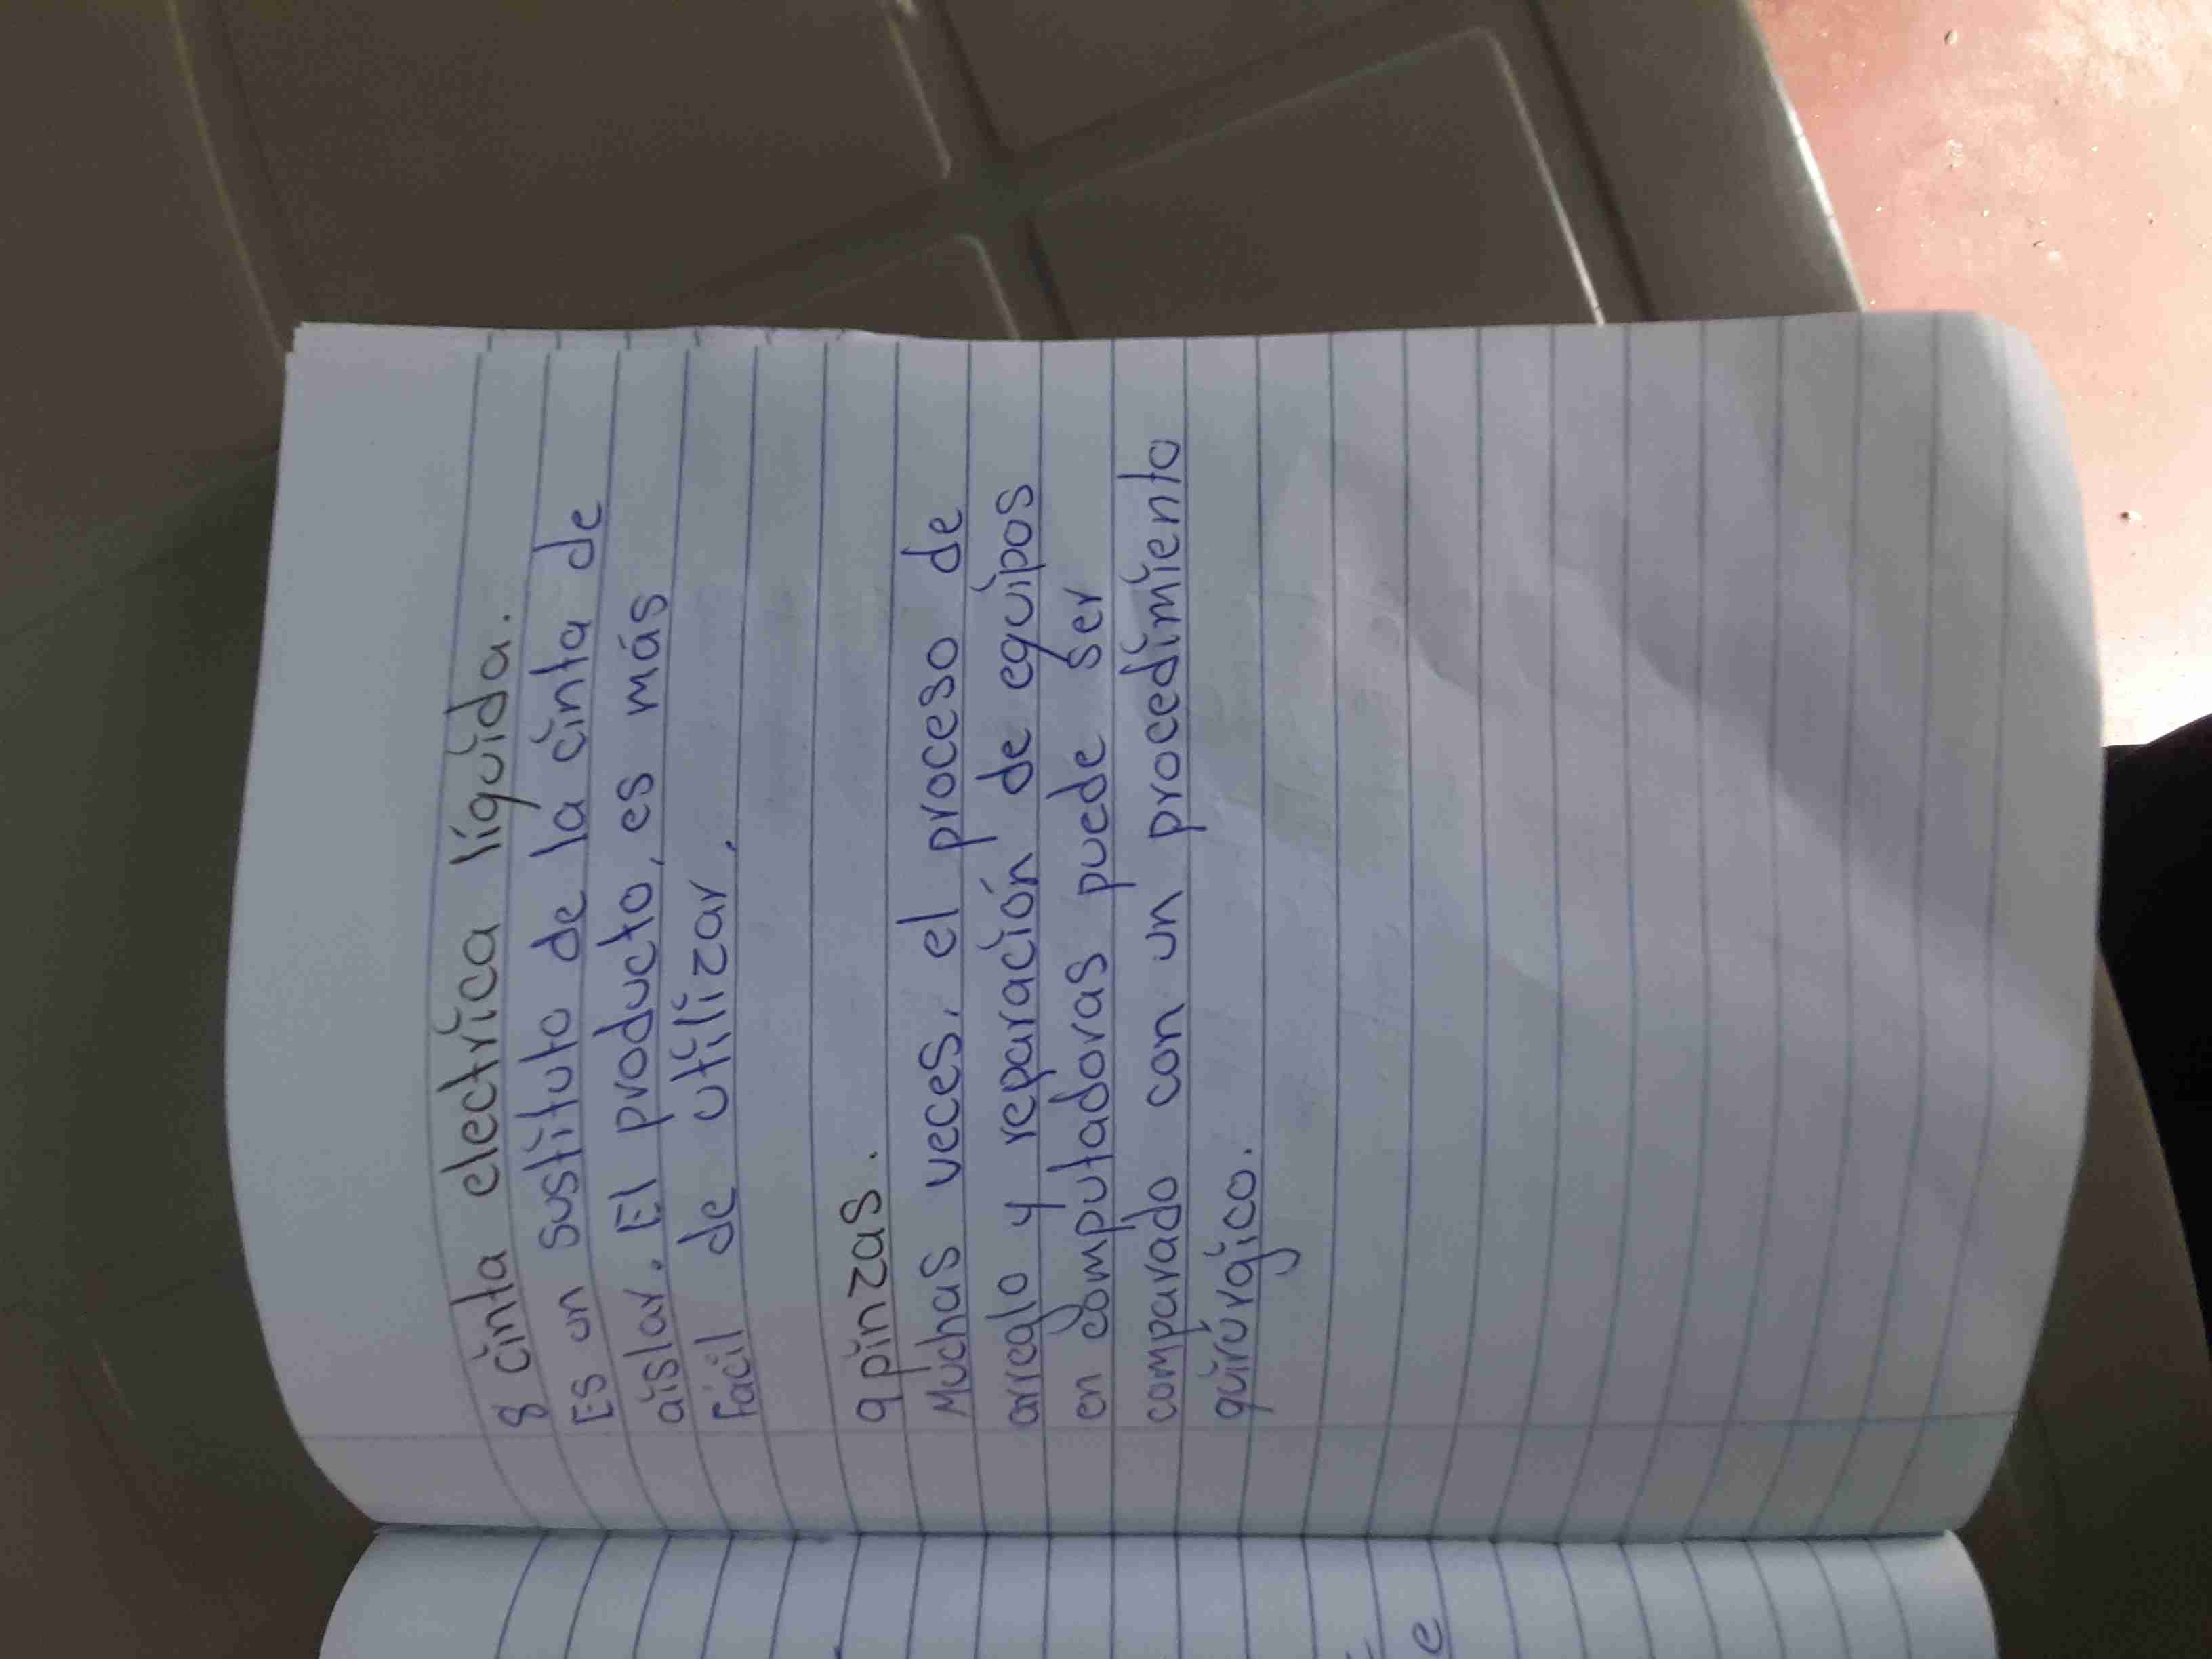 8 cinta electrica líquida.
Es un sustituto de la cinta de
aislar. El producto, es más
Fácil de utilizar.
9 pinzas.
Muchas veces, el proceso de
arreglo y reparación de equipos
en computadoras puede ser
comparado con un procedimiento
quirúrgico.
e